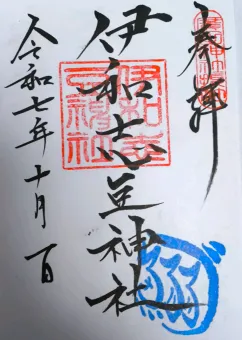 奉拝
伊和志豆神社
令和七年十月一日
伊和志
豆神社